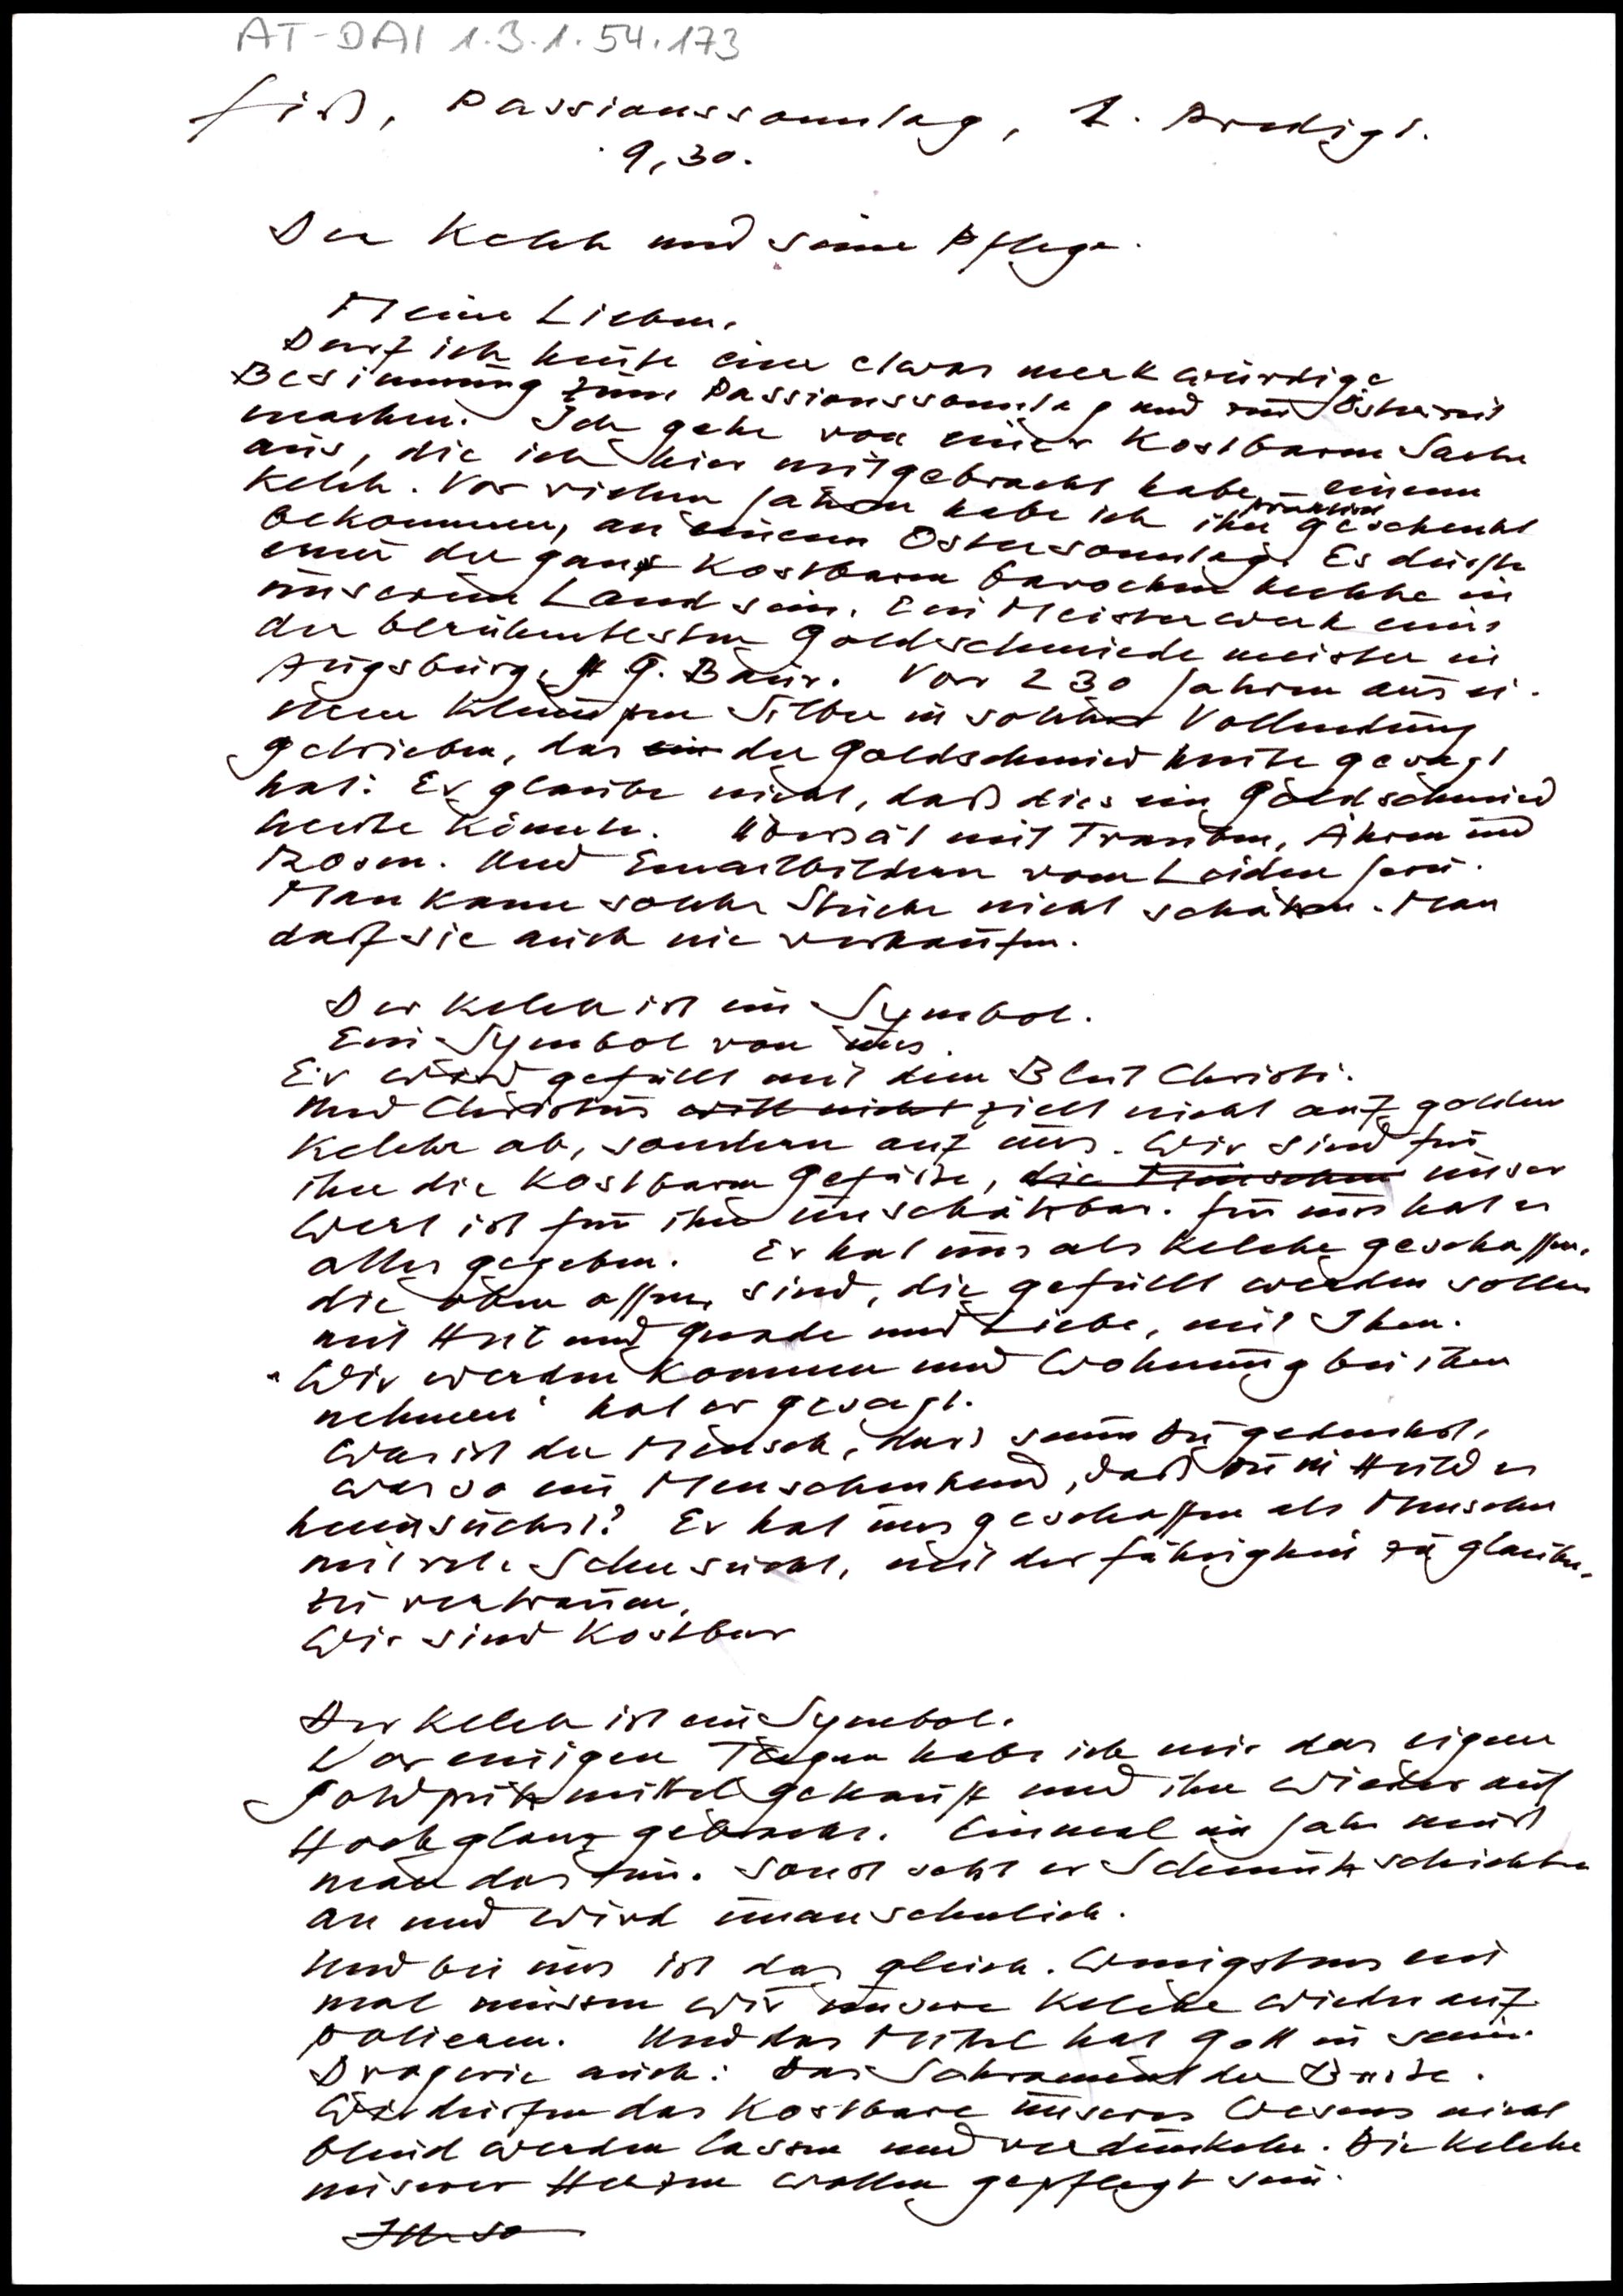 AT-DAI 1.3.1.54.173
Fiß, Passionssonntag, 1. Predigt.
9,30.
Der Kelch und seine Pflege.
Meine Lieben,
Darf ich heute eine etwas merkwürdige
Besinnung zum Passionssonntag und zur Osterzeit
machen. Ich gehe von einer kostbaren Sache
aus, die ich hier mitgebracht habe, einem
Kelch. Vor vielen Jahren habe ich ihn geschenkt
bekommen, an einem Ostersonntag. Es dürfte
einer der ganz kostbaren barocken Kelche in
unserem Land sein. Ein Meisterwerk eines
der berühmtesten Goldschmiedemeister in
Augsburg, G. Baur. Vor 230 Jahren aus ei-
nem Klumpen Silber in solcher Vollendung
getrieben, das der Goldschmied heute gesagt
hat: Er glaube nicht, daß dies ein Goldschmied
heute könnte. Übersät mit Trauben, Ähren und
Rosen. Und Emailbildern vom Leiden Jesu.
Man kann solche Stücke nicht schätzen. Man
darf sie auch nie verkaufen.
Der Kelch ist ein Symbol.
Ein Symbol von uns.
Er wird gefüllt mit dem Blut Christi.
Und Christus will nicht zielt nicht auf goldene
Kelche ab, sondern auf uns. Wir sind für
ihn die kostbaren Gefäße, die Menschen unser
Wert ist für ihn unschätzbar. Für uns hat er
alles gegeben. Er hat uns als Kelche geschaffen,
die oben offen sind, die gefüllt werden sollen
mit Heil und Gnade und Liebe, mit Ihm.
"Wir werden kommen und Wohnung bei ihm
nehmen" hat er gesagt.
Was ist der Mensch, daß seiner Du gedenkst,
was so ein Menschenkind, daß Du in Huld es
heimsuchst? Er hat uns geschaffen als Menschen
mit der Sehnsucht, mit der Fähigkeit zu glauben,
zu vertrauen,
Wir sind kostbar
Der Kelch ist ein Symbol.
Vor einigen Tagen habe ich mir das eigene
Goldputzmittel gekauft und ihn wieder auf
Hochglanz gebracht. Einmal im Jahr muß
man das tun. Sonst setzt er Schmutzschichten
an und wird unansehnlich.
Und bei uns ist das gleich. Wenigstens ein
mal müssen wir unsere Kelche wieder auf
polieren. Und das Mittel hat Gott in seiner
Drogerie auch: Das Sakrament der Buße.
Wir dürfen das Kostbare unseres Wesens nicht
blind werden lassen und verdunkeln. Die Kelche
unserer Herzen wollen gepflegt sein.